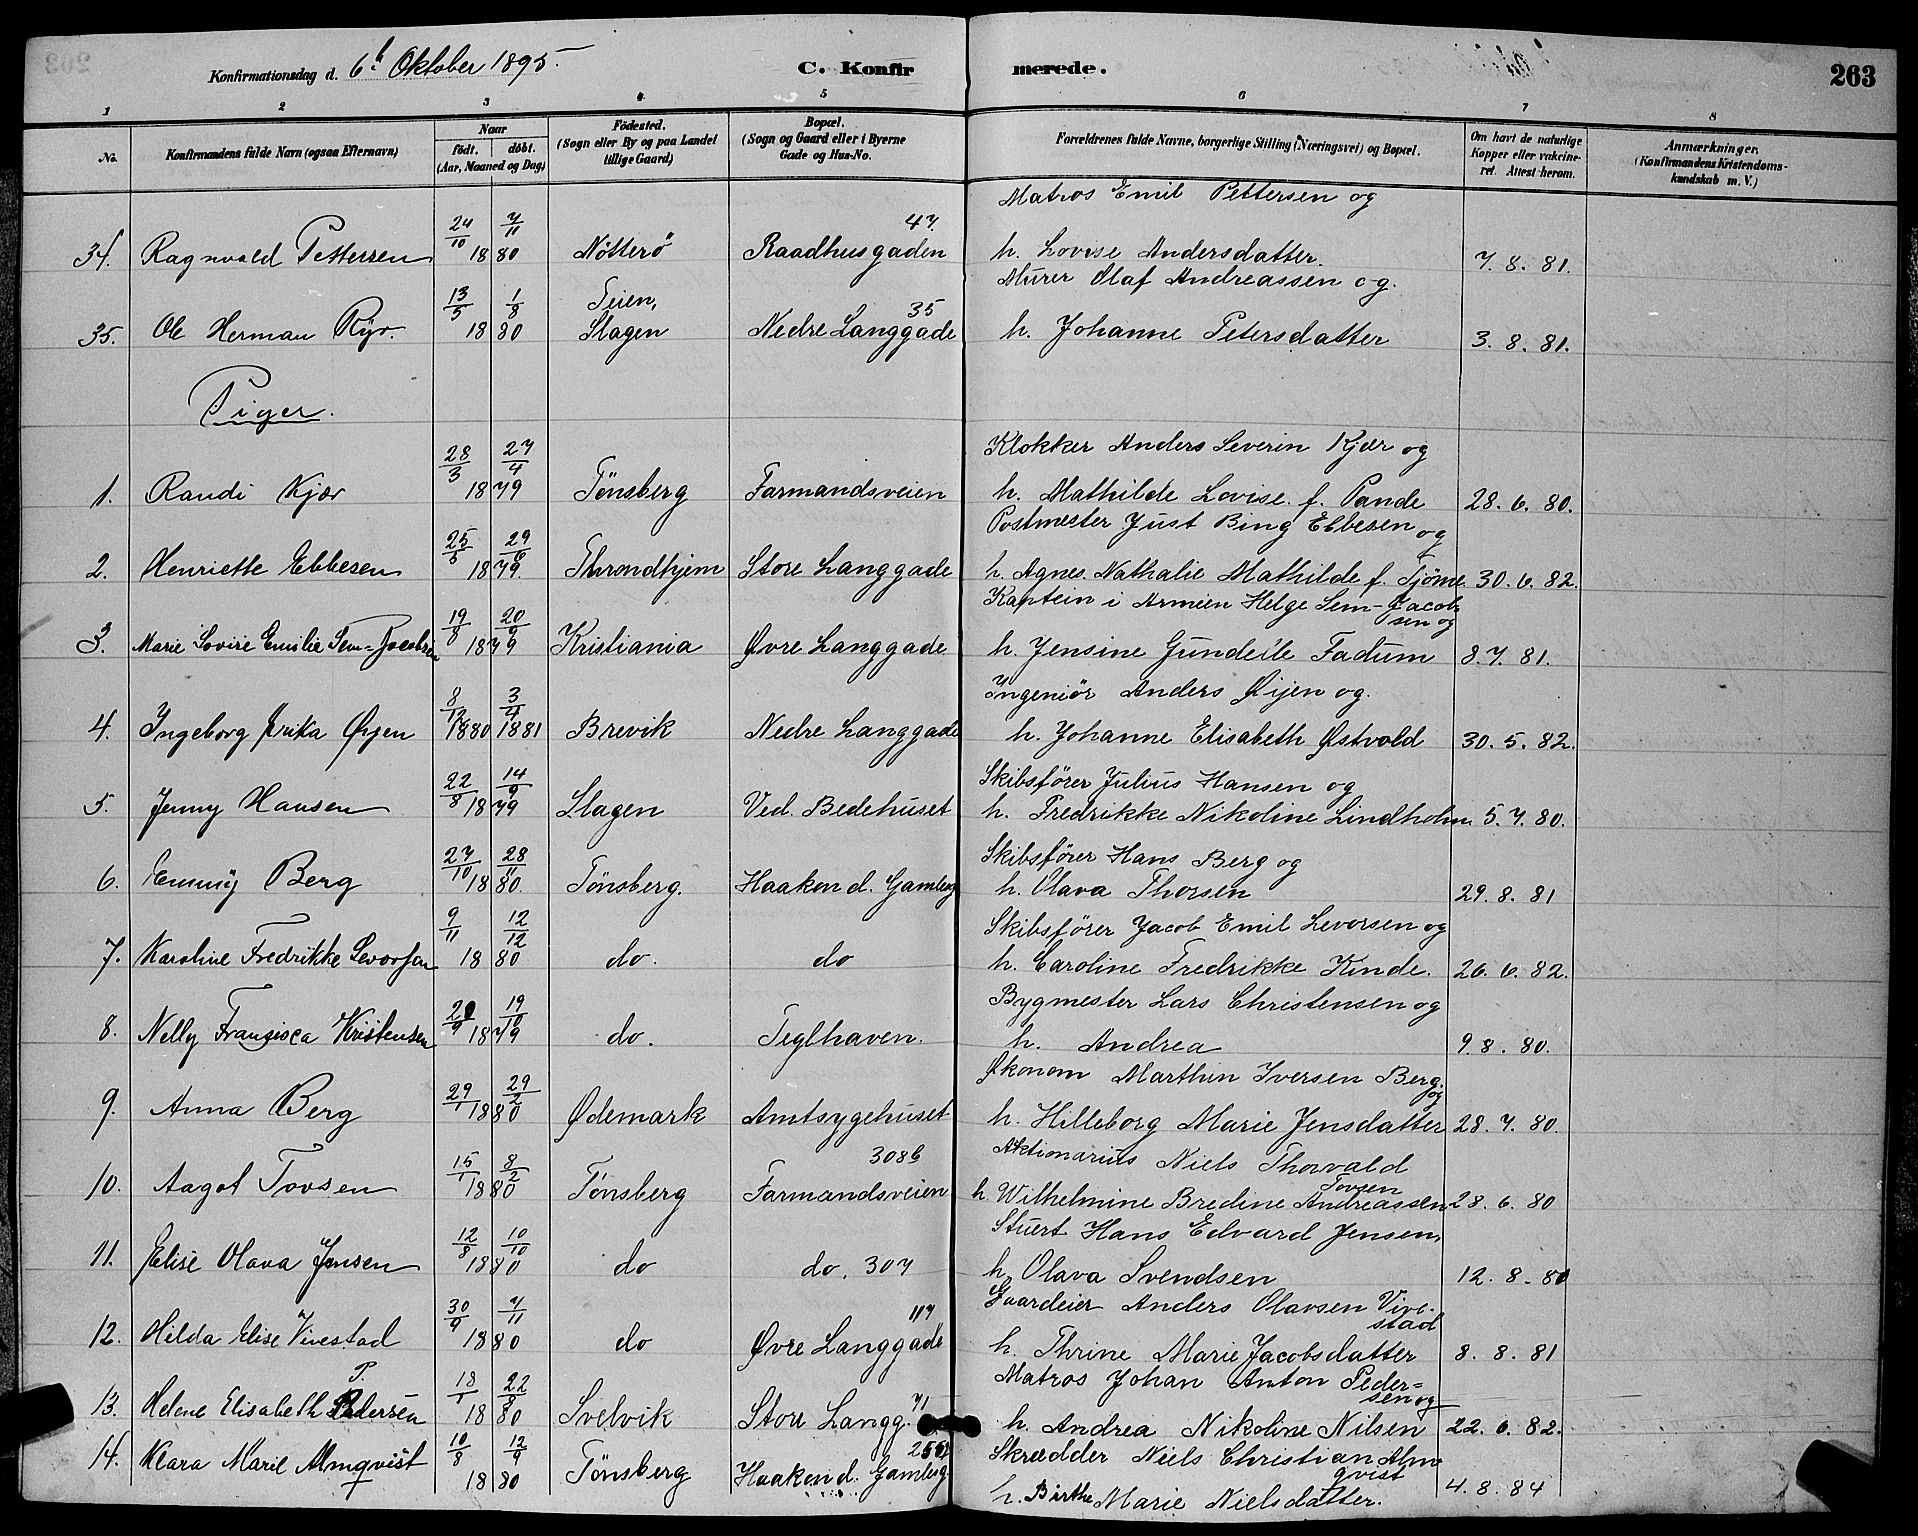 Konfirmationsdag d. 6t Oktober 1895.
C. Konfirmerede.
263
1 2 3 4 5 6 7 8
No.
Konfirmandens fulde Navn (ogsaa Efternavn)
Naar
født. døbt.
(Aar, Maaned og Dag)
Fødested.
(Sogn eller By og paa Landet
tillige Gaard)
Bopæl.
(Sogn og Gaard eller i Byerne
Gade og Hus-No.
Forældrenes fulde Navne, borgerlige Stilling (Næringsvei) og Bopæl.
Om havt de naturlige
Kopper eller vakcine-
ret. Attest herom.
Anmærkninger.
(Konfirmandens Kristendoms-
kundskab m. V.)
24/10 7/11 47. Matros Emil Pettersen og
34. Ragnvald Pettersen 18 80 Nötterö Raadhusgaden h. Lovise Andersdatter. 7. 8. 81.
13/5 1/8 Teien, 35 Murer Olaf Andreassen og.
35. Ole Herman Ryr. 18 80 Slagen Nedre Langgade h. Johanne Petersdatter 3. 8. 81.
Piger.
28/3 27/4 Klokker Anders Severin Kjær og
1. Randi Kjær 18 79 Tønsberg Farmandsveien h. Mathilde Lovise. f. Pande 28. 6. 80.
25/5 29/6 Postmester Just Bing Ebbesen og
2. Henriette Ebbesen 18 79. Throndhjem Store Langgade h. Agnes. Nathalie Mathilde f. Tjöme 30. 6. 82.
19/8 20/9 Kaptein i Armeen Helge Sem-Jacob
sen og
3. Marie Lovise Emilie Sem-Jacobsen 18 79 Kristiania Øvre Langgade h. Jensine Gundelle Fadum 8. 7. 81.
8/12 3/4 Ingeniör Anders Øijen og.
4. Ingeborg Erika Øijen 1880 1881 Brevik Nedre Langgade h. Johanne Elisabeth Østvold 30. 5. 82.
22/8 14/9 Skibsfører Julius Hansen og
5. Jenny Hansen 18 79 Slagen Ved. Bedehuset h. Fredrikke Nikoline Lindholm 5. 7. 80.
27/10 28/11 Skibsfører Hans Berg og
6. Emmy Berg 18 80. Tønsberg. Haakon d. Gamles g h. Olava Thorsen 29. 8. 81
9/11 12/12 Skibsfører Jacob Emil Levorsen og
7. Karoline Fredrikke Levorsen 18 80 do. do h. Caroline Fredrikke Kinde. 26. 6. 82.
20/9 19/10 Bygmester Lars Christensen og
8. Nelly Franzisca Kristensen 18 79 do. Teglhaven. h. Andrea 9. 8. 80.
29/1 29/2 Økonom Marthin Iversen Berg.
og
9. Anna Berg 18 80 Ødemark Amtsygehuset h. Hilleborg Marie Jensdatter 28. 7. 80.
15/1 8/2 308b Aktionarius Niels Thorvald
Tovsen
10. Aagot Tovsen 18 80 Tønsberg Farmandsveien h. Wilhelmine Bredine Andreassen 28. 6. 80
12/8 10/10 Stuert Hans Edvard Jensen,
11. Elise Olava Jensen 18 80 do do. 307 h. Olava Svendsen 12. 8. 80
30/9 7/11 117 Gaardeier Anders Olavsen Vive-
stad
12. Hilda Elise Vivestad 18 80 do Øvre Langgade h. Thrine Marie Jacobsdatter 8. 8. 81
P. 18/1 22/8 71 Matros Johan Anton Peder-
sen og
13. Helene Elisabeth Pedersen 18 80 Svelvik Store Langg. h. Andrea Nikoline Nilsen 22. 6. 82.
10/8 12/9 Skrædder Niels Christian Alm
qvist
14. Klara Marie Almqvist 18 80 Tønsberg Haakon d. Gamles g h. Birthe Marie Nielsdatter. 4. 8. 84